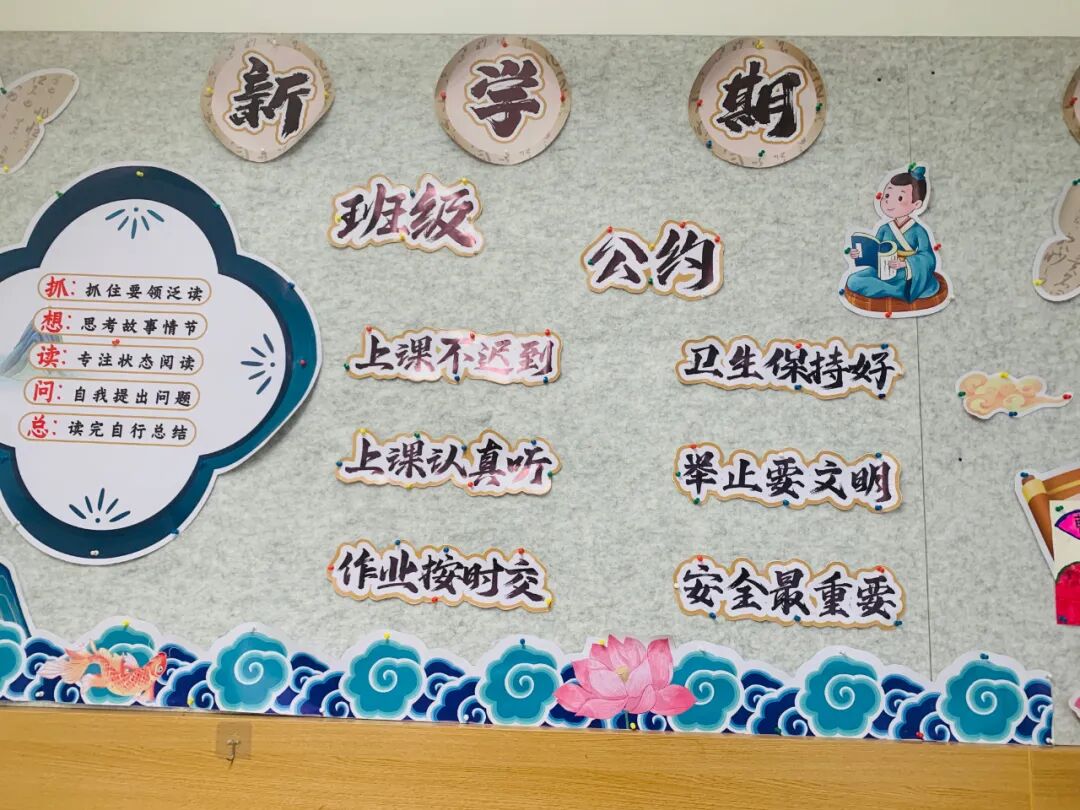 新学期
班级
公约
抓：抓住要领泛读
想：思考故事情节
读：专注状态阅读
问：自我提出问题
总：读完自行总结
上课不迟到
上课认真听
作业按时交
卫生保持好
举止要文明
安全最重要